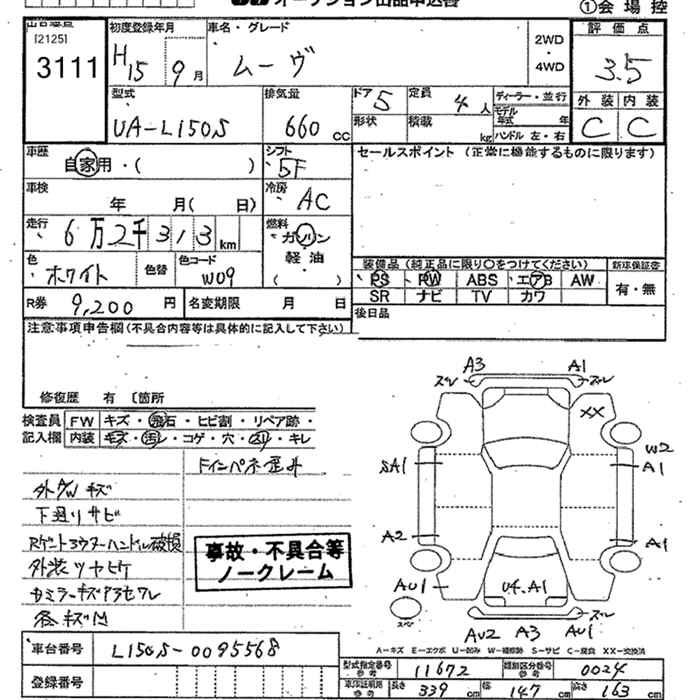 オークション出品申込書
①会場控
(2125)
3111
初度登録年月
H15 9月
車名・グレード
ムーヴ
2WD
・
4WD
評価点
3.5
型式
UA-L150S
排気量
660 cc
ドア 5
定員 4人
形状
積載 kg
ディーラー・並行
モデル年式 年
ハンドル 左・右
外装 内装
C C
車歴
自家用・( )
シフト
5F
セールスポイント (正常に機能するものに限ります)
車検
年 月( 日)
冷房
AC
走行
6万2千313km
燃料
ガソリン
軽油
( )
色
ホワイト
色替
色コード
W09
装備品 (純正品に限り○をつけてください)
新車保証書
PS PW ABS エアB AW
SR ナビ TV カワ
有・無
R券 9,200円
名変期限 月 日
後日品
注意事項申告欄(不具合内容等は具体的に記入して下さい)
修復歴 有 〔箇所
検査員
記入欄
FW キズ・飛石・ヒビ割・リペア跡・
内装 キズ・汚レ・コゲ・穴・凹り・キレ
外/W キズ
下廻りサビ
外装ツヤヒケ
事故・不具合等
ノークレーム
車台番号 L150S-0095568
登録番号
A3 A1
ズレ ズレ
XX
SA1
W2
A1
A2
A1
AU1
U4.A1
ズレ
AU2 A3 AU1
A-キズ E-エクボ U-凹み W-補修跡 S-サビ C-腐食 XX-交換済
型式指定番号 11672
類別区分番号 0024
車体証明用参考 長さ 339cm 幅 147cm 高さ 163cm